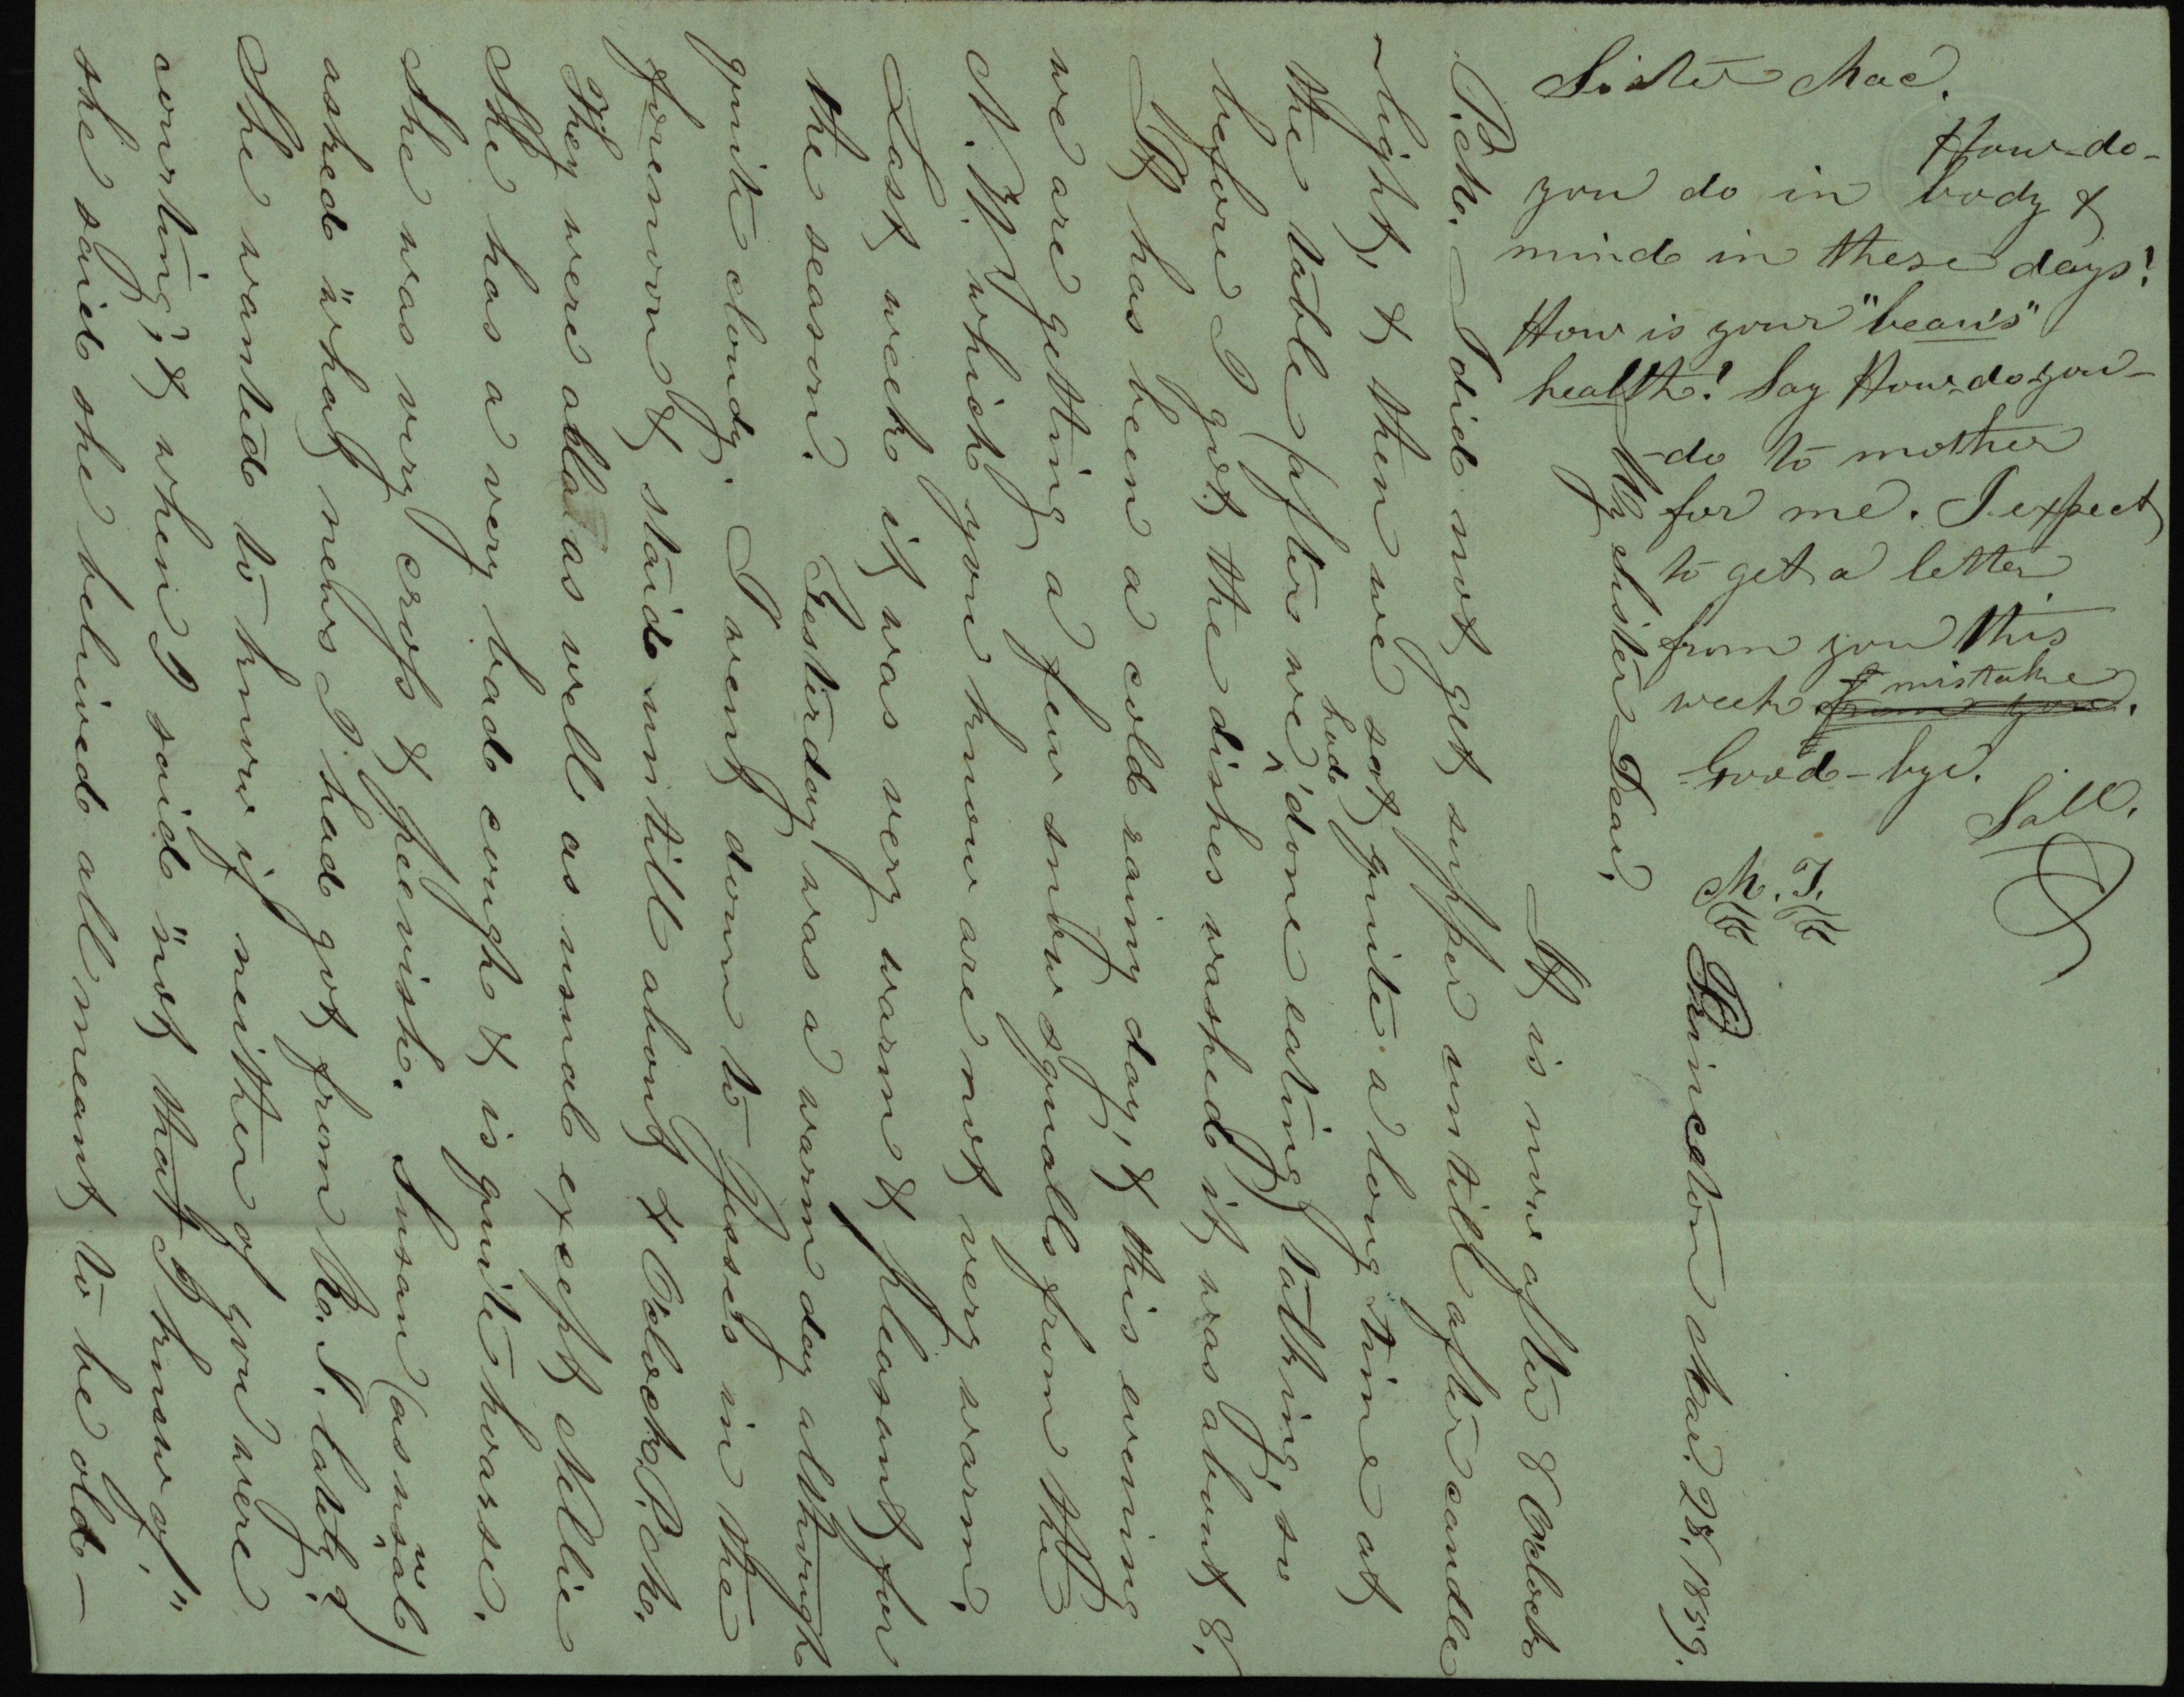 Sister Mac.
How-do-
you do in body &
mind in these days?
How is your "beau's"
health? Say How-do-you-
-do to mother
for me. I expect
to get a letter
from you this
mistake
week from you.
Good-bye.
Sall.
M. T.
Princeton Mar. 28. 1859.
My Sister Dear,
It is now after 8 Oclock
P.M. I did not get supper untill after candle
-light, & then we sat quite a long time at
the table after we had done eating talking, so
before I got the dishes washed it was about 8.
It has been a cold rainy day, & this evening
we are getting a few snow squalls from the
N.W. which you know are not very warm.
Last week it was very warm & pleasant for
the season. Yesterday was a warm day although
quite cloudy. I went down to Jesse's in the
forenoon & staid untill about 7 Oclock P.M.
They were all as well as usual except Nellie
She has a very bad cough & is quite hoarse.
She was very cross & peevish. Susan (as usual)
asked "what news I had got from N. S. lately?
She wanted to know if neither of you were
courting, & when I said "not that I know of,"
she said she believed all meant to be old-